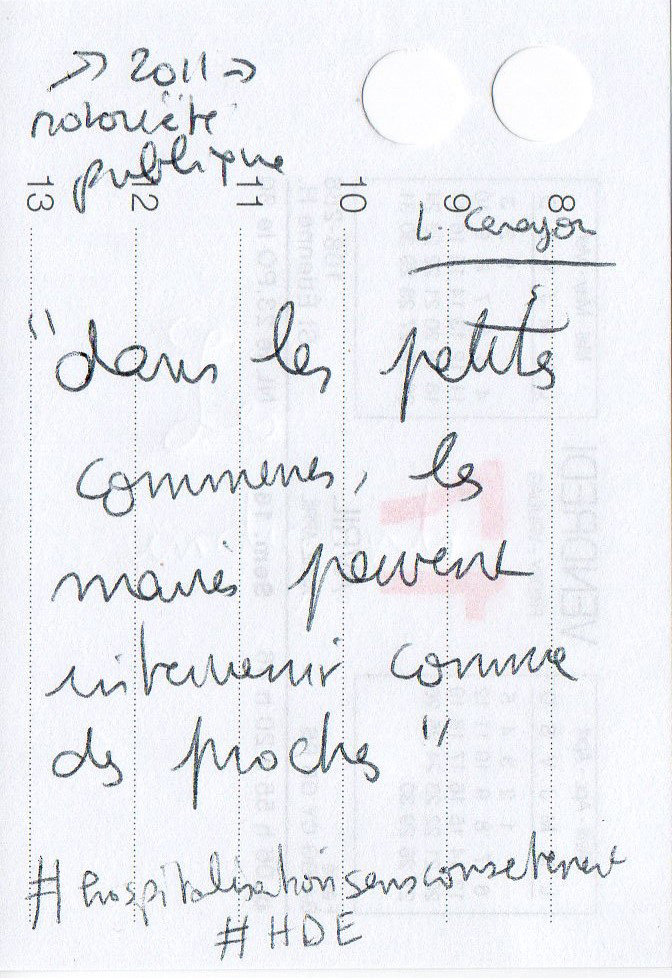 -> 2011 ->
notoriété
publique
13 12 11 10 9 8
L. Cenayor
"dans les petites
communes, les
maires peuvent
intervenir comme
des proches"
#hospitalisationsansconsentement
#HDE
VENDREDI